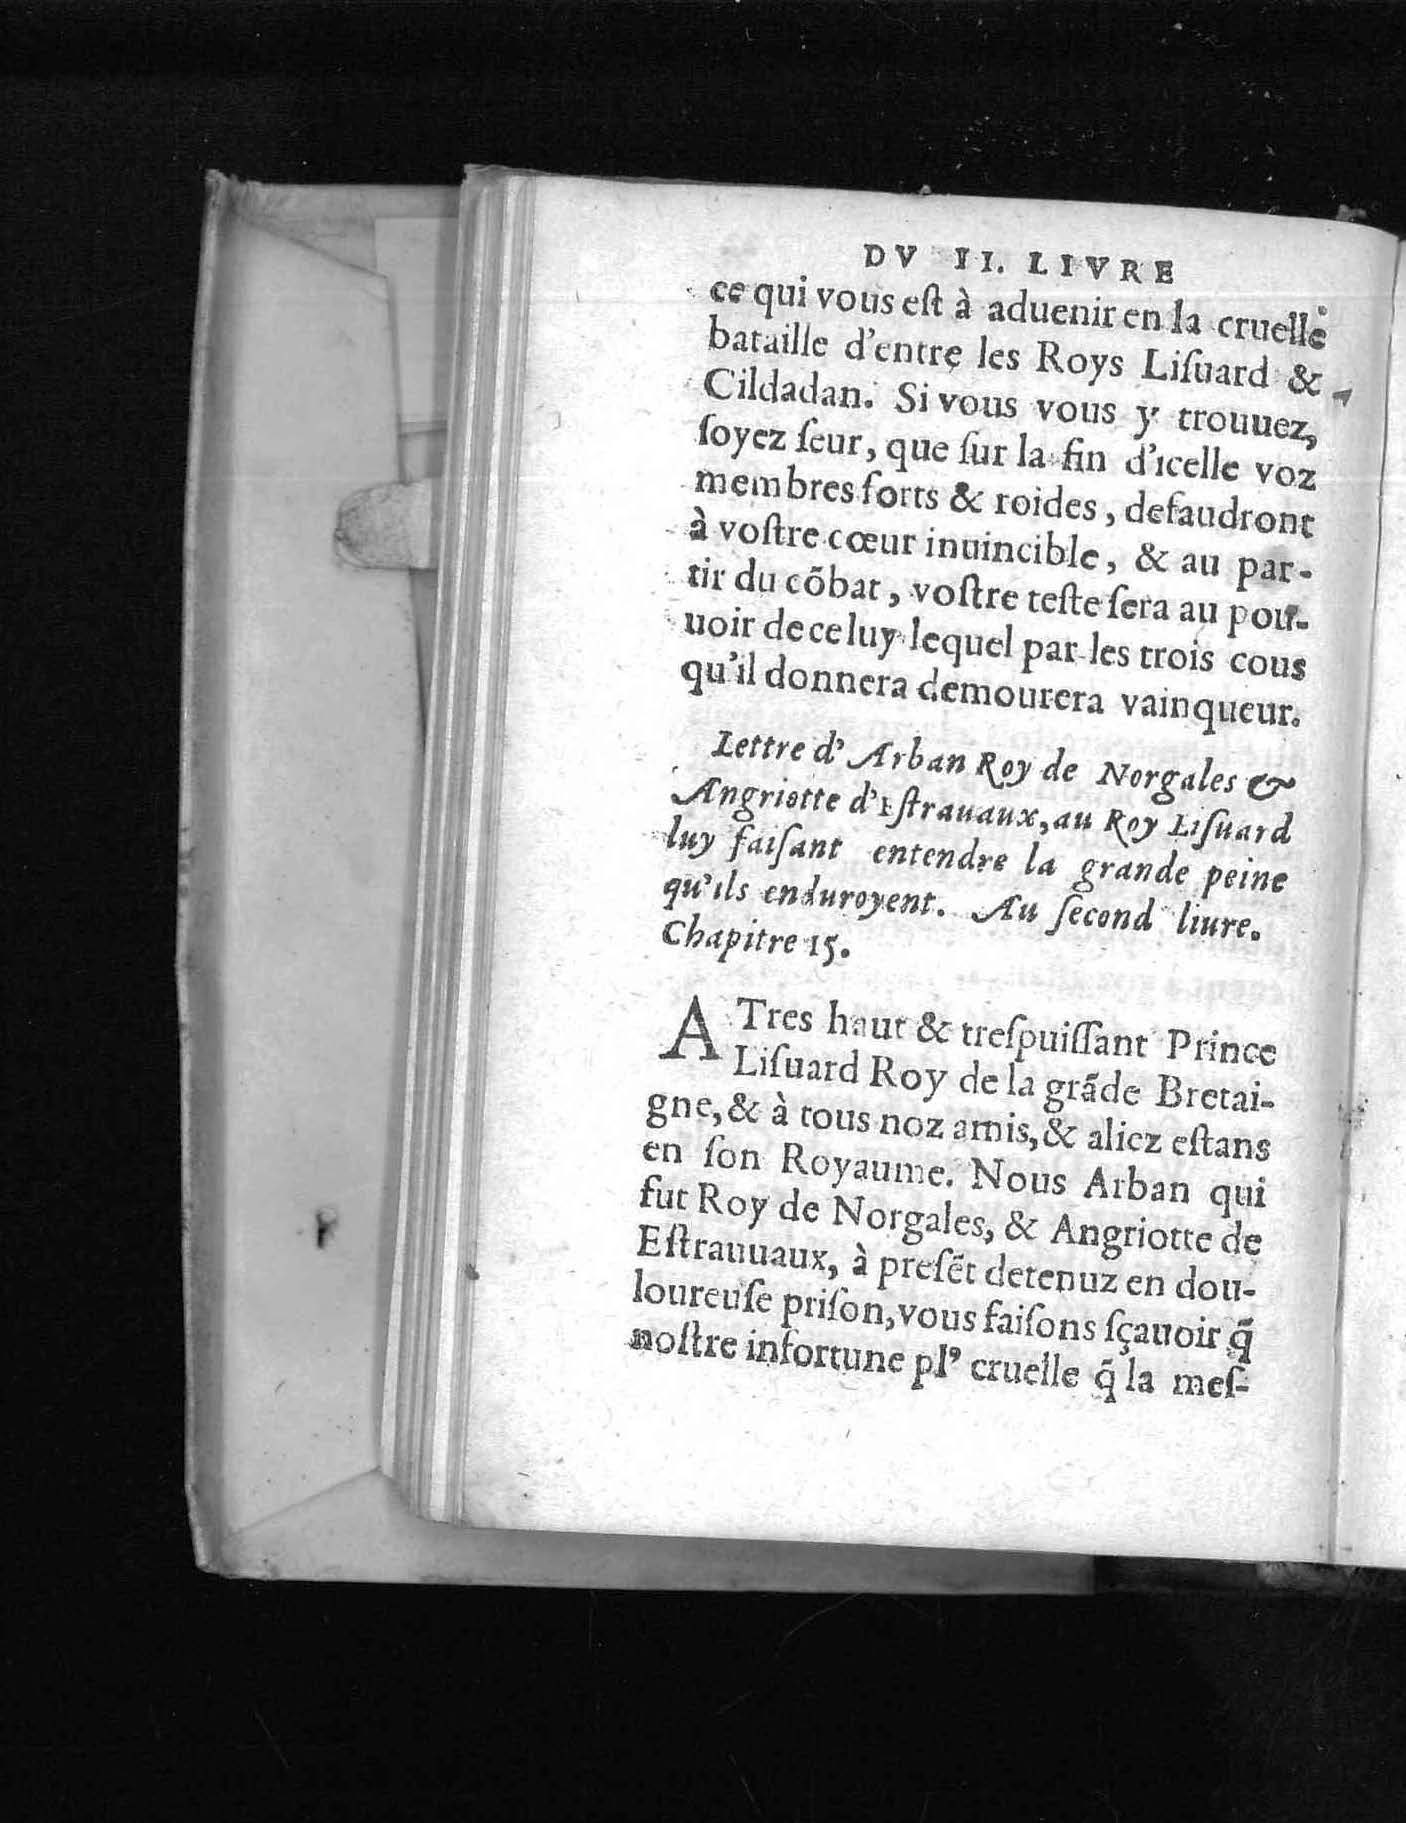 DV II. LIVRE
ce qui vous eſt à aduenir en la cruelle
bataille d'entre les Roys Liſuard &
Cildadan. Si vous vous y trouuez,
ſoyez ſeur, que ſur la fin d'icelle voz
membres forts & roides, defaudront
à voſtre cœur inuincible, & au par-
tir du cõbat, voſtre teſte ſera au pou-
uoir de celuy lequel par les trois cous
qu'il donnera demourera vainqueur.
Lettre d'Arban Roy de Norgales &
Angriotte d'Eſtrauaux, au Roy Liſuard
luy faiſant entendre la grande peine
qu'ils enduroyent. Au ſecond liure.
Chapitre 15.
A Tres haut & treſpuiſſant Prince
Liſuard Roy de la grãde Bretai-
gne, & à tous noz amis, & aliez eſtans
en ſon Royaume. Nous Arban qui
fut Roy de Norgales, & Angriotte de
Eſtrauuaux, à preſẽt detenuz en dou-
loureuſe priſon, vous faiſons ſçauoir q̃
noſtre infortune pl⁹ cruelle q̃ la meſ-